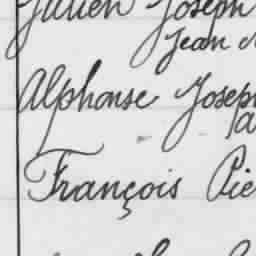 Julien Joseph
Jean
Alphonse Josep
François Pie